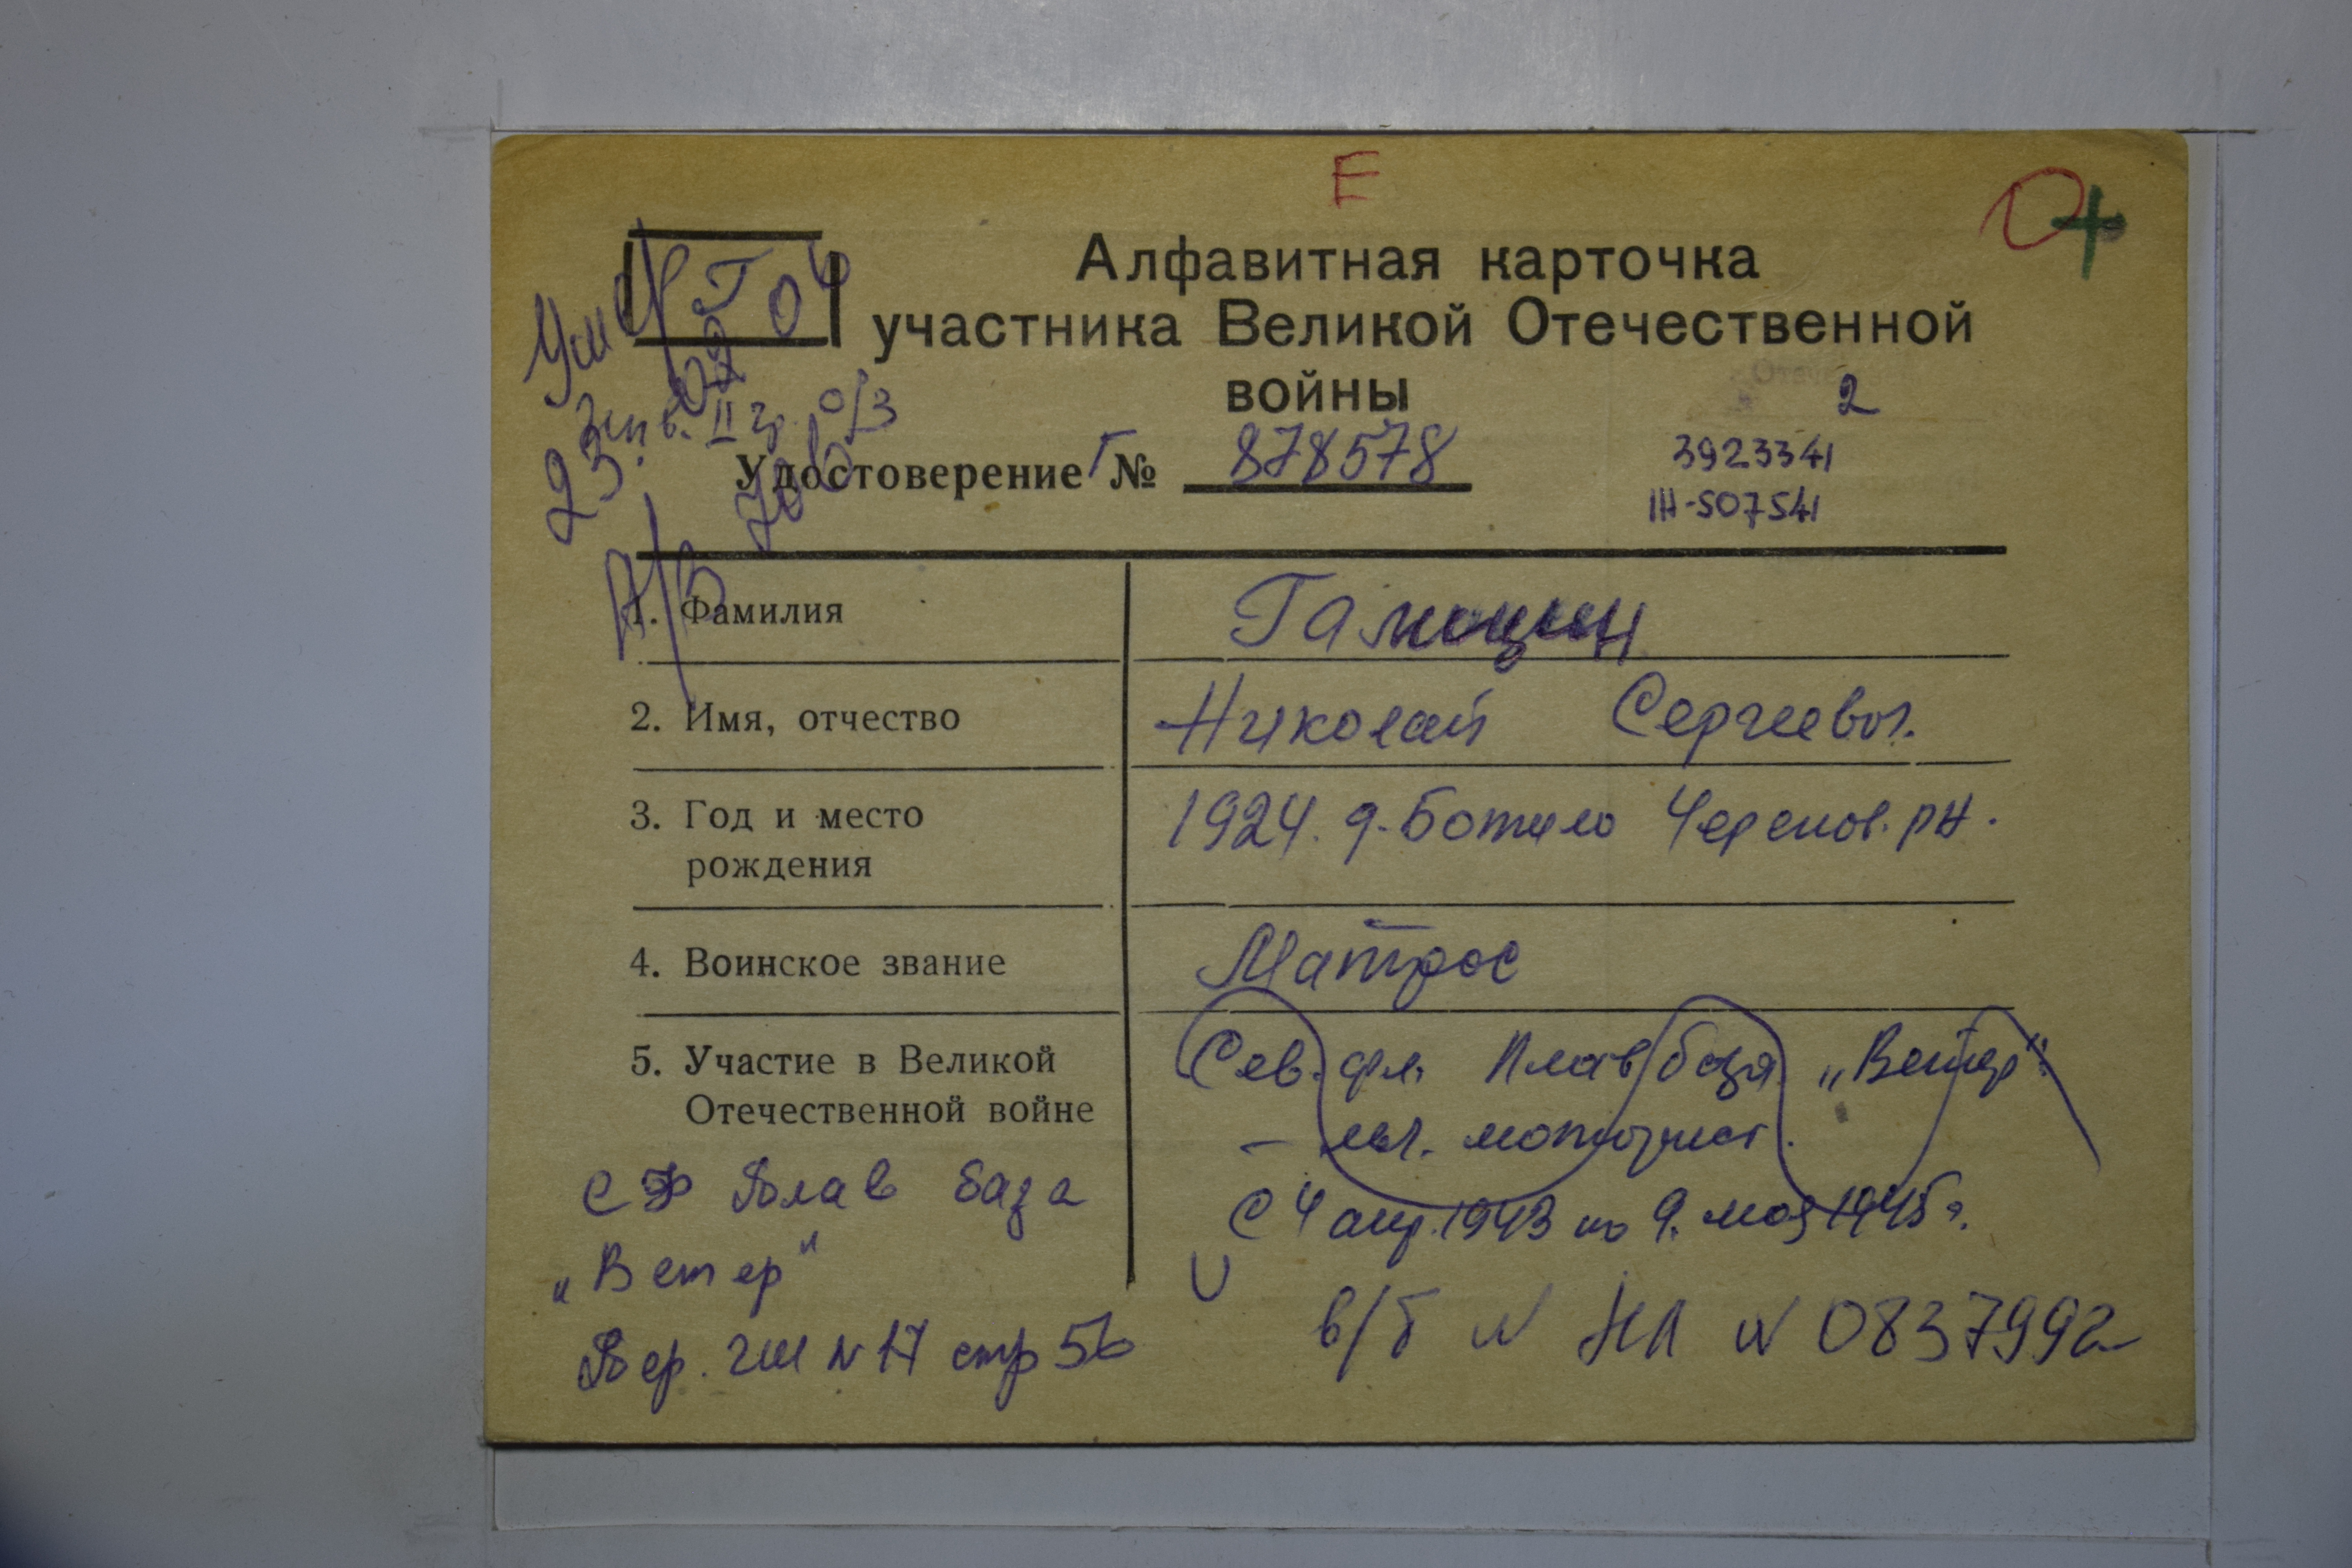 Е
+
Алфавитная карточка
участника Великой Отечественной
войны
2
Инв. II гр. о/з
Удостоверение Г № 878578
3923341
III-507541
1. Фамилия
2. Имя, отчество Николай Сергеевич.
3. Год и место рождения 1924. д. Ботино Черепов. р-н.
4. Воинское звание Матрос
5. Участие в Великой Отечественной войне
Сев. фл. Плав база „Ветер“
– мл. моторист.
С 4 апр. 1943 по 9. мая 1945 г.
СФ Плав база
„Ветер“
Пер. ГШ N 17 стр 56
в/б N НЛ N 0837992